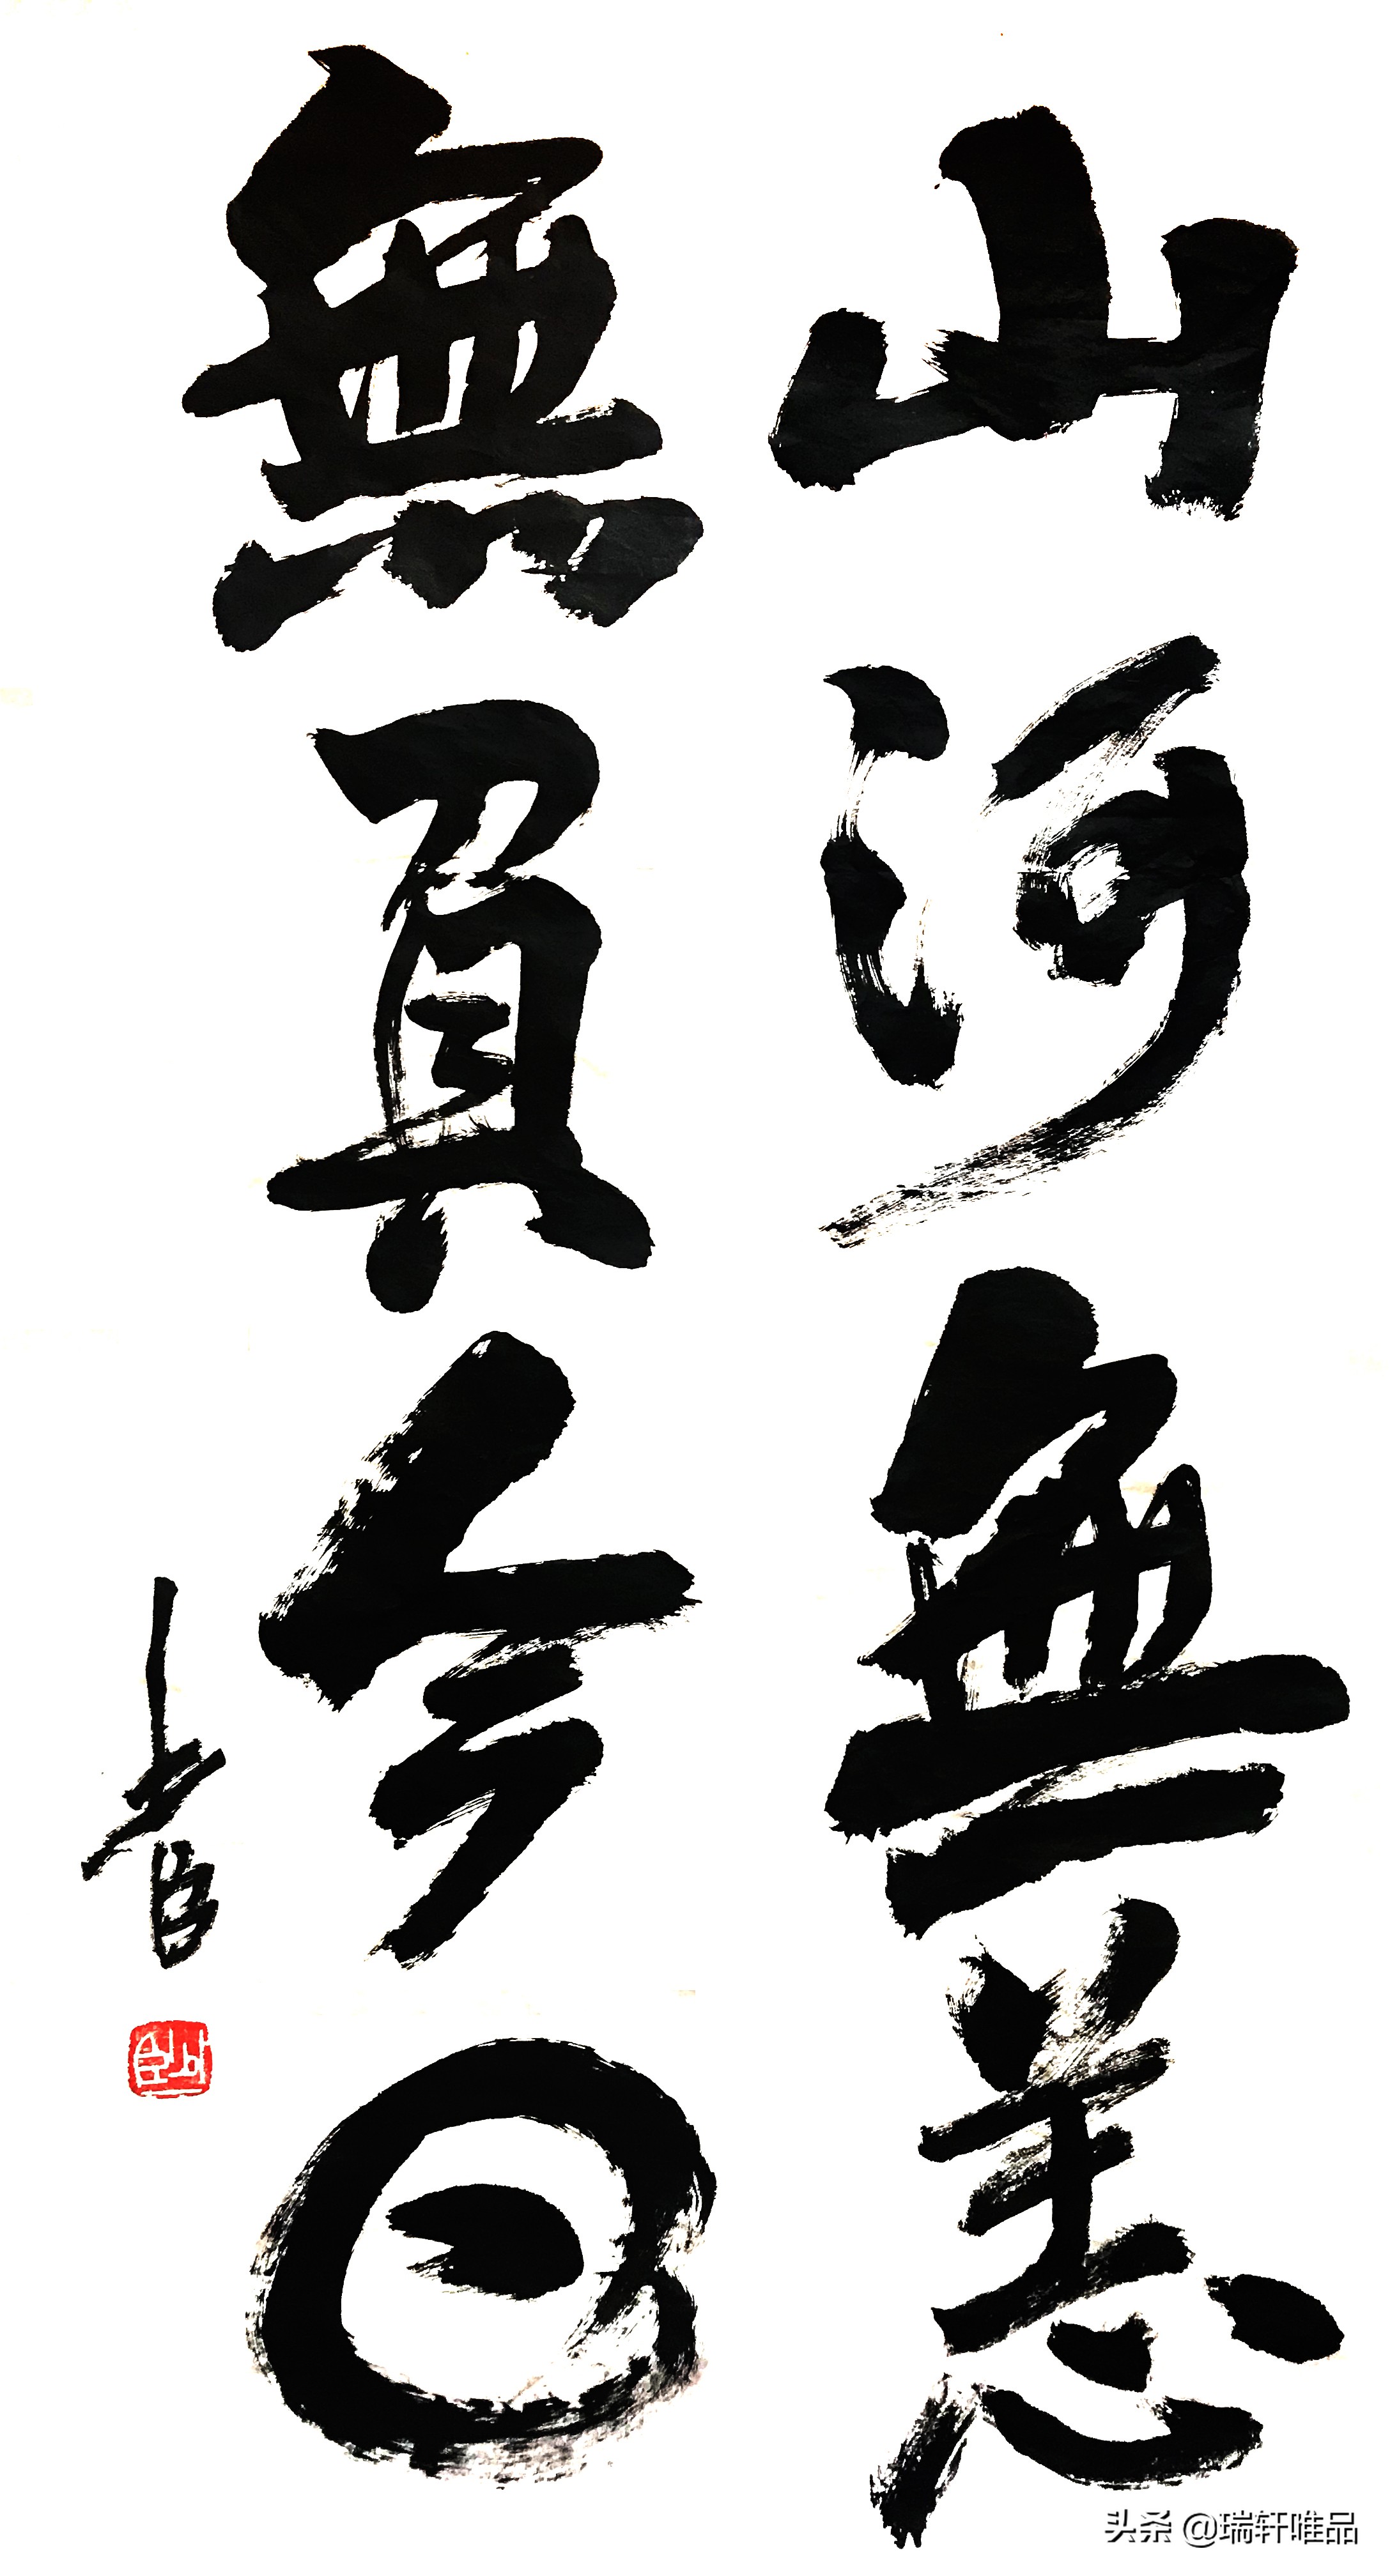 山河無恙
無負今日
头条 @瑞轩唯品